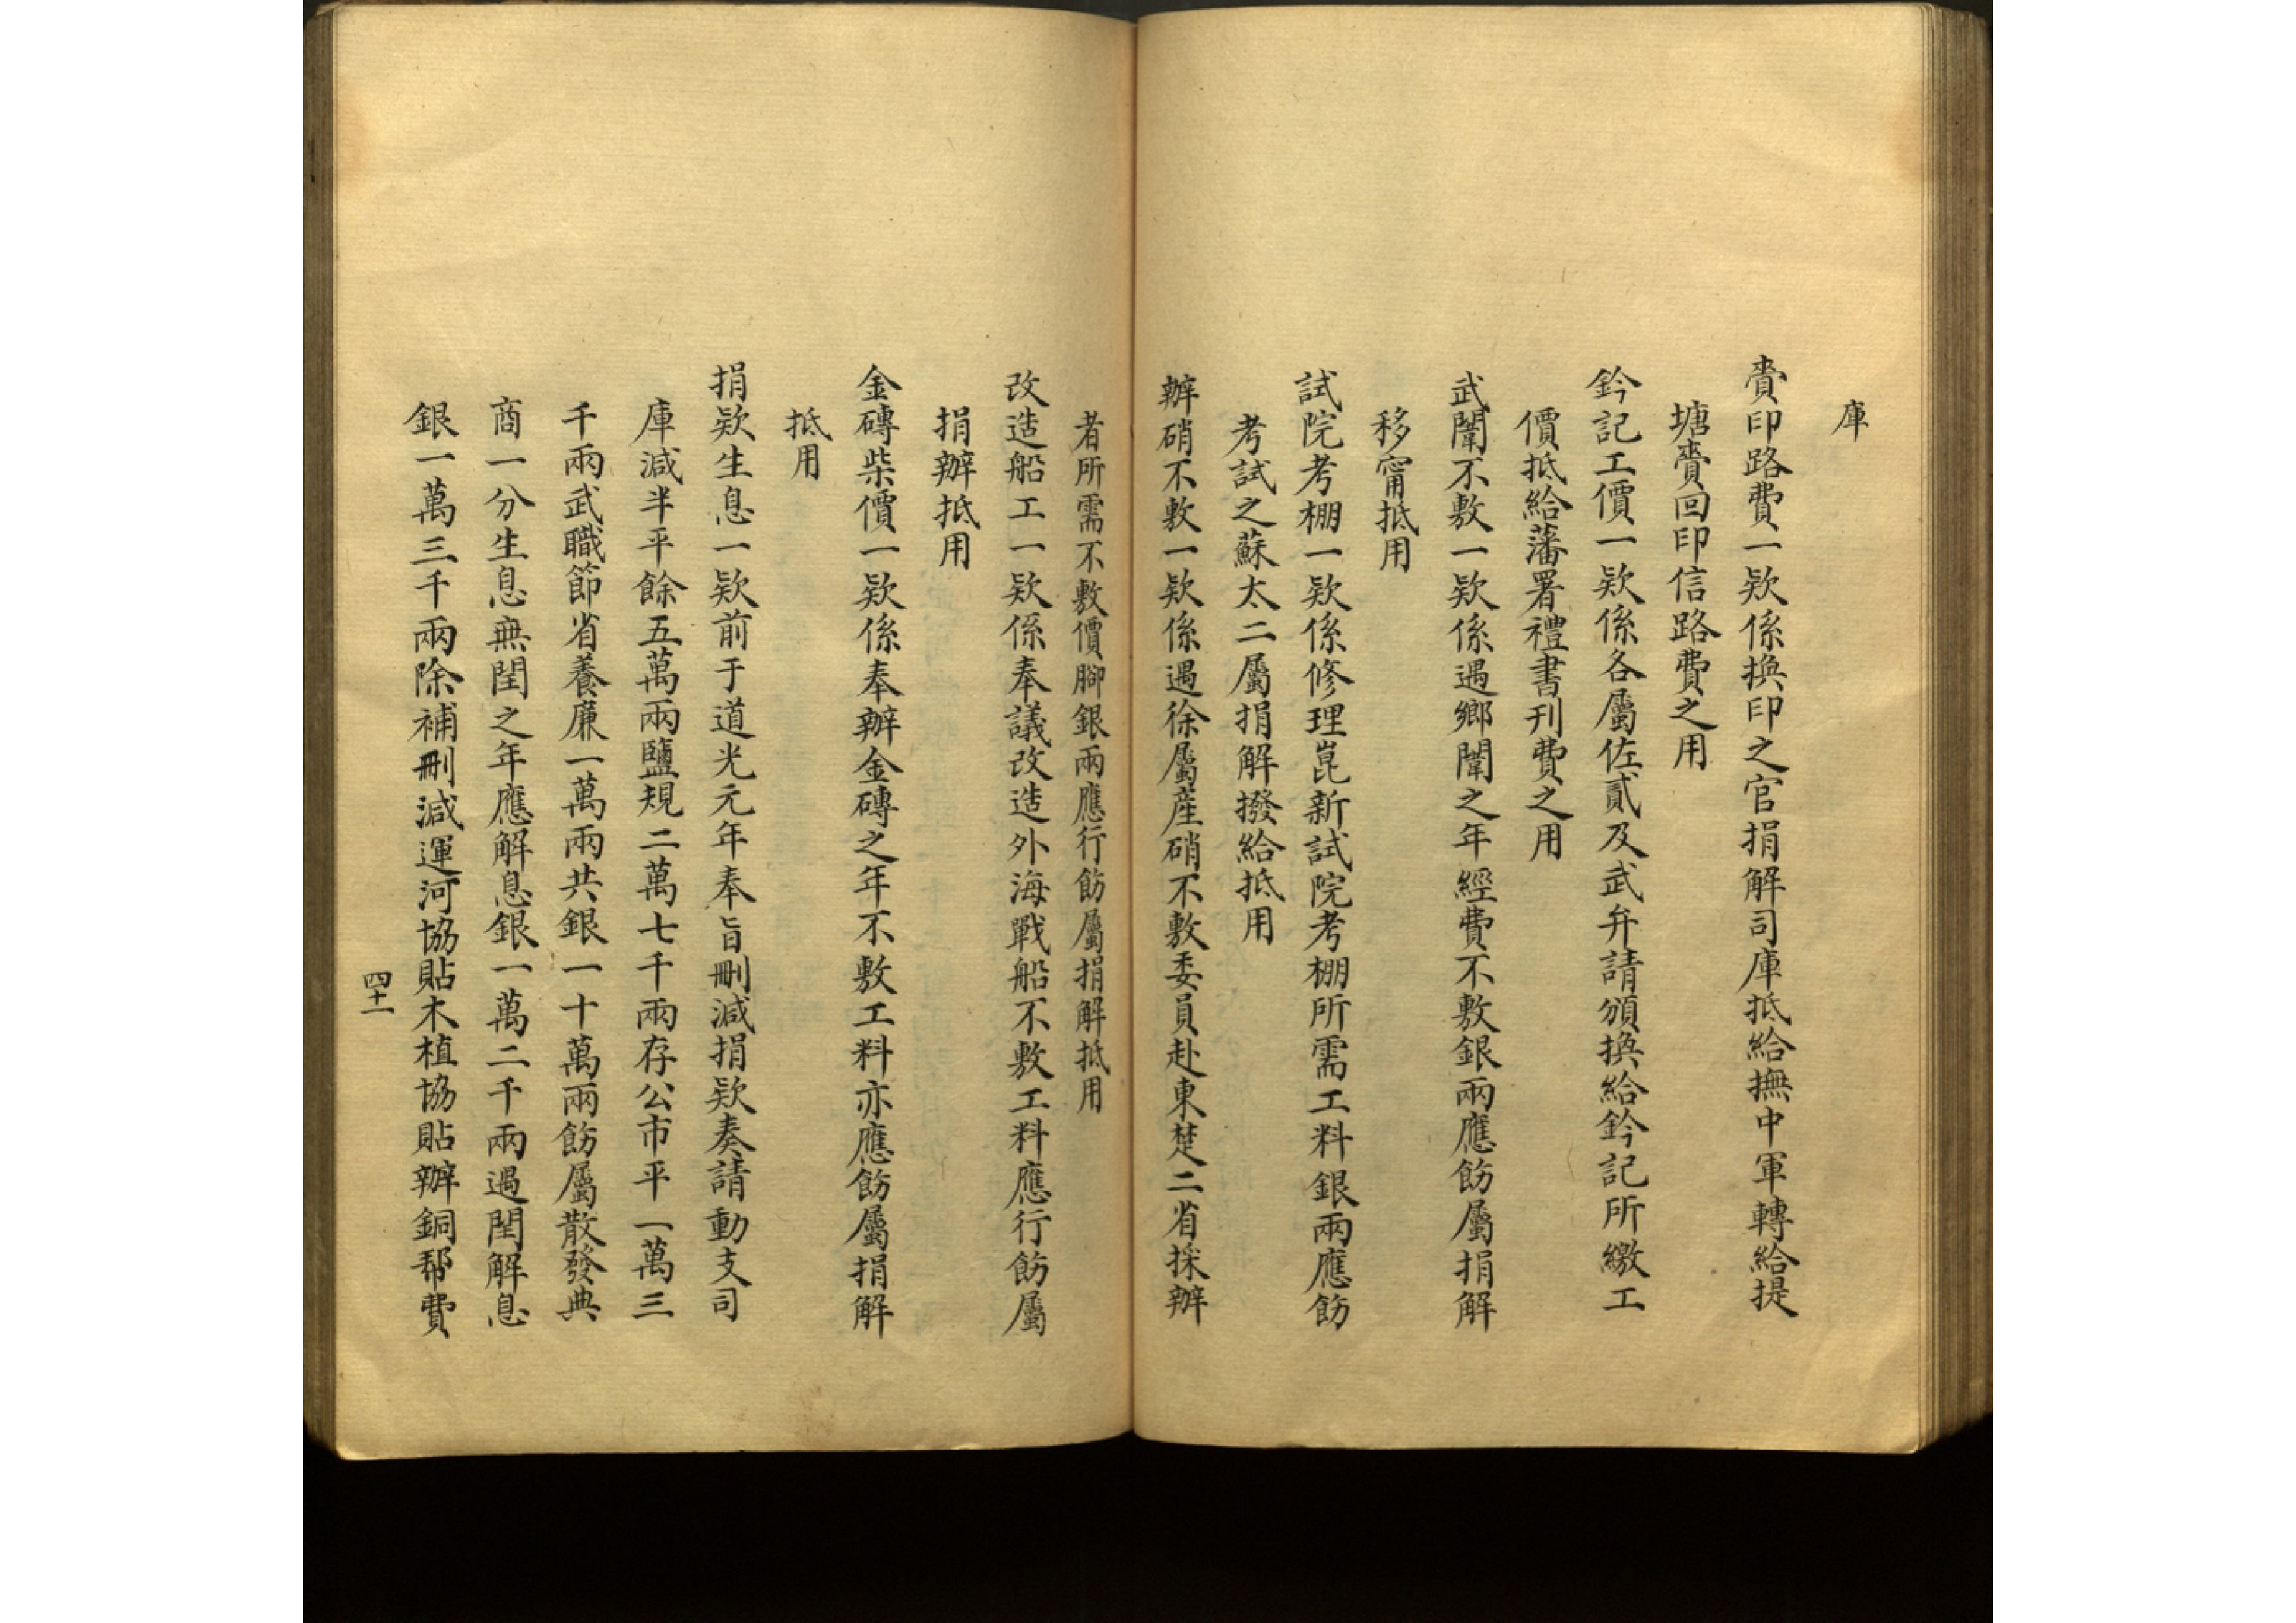 庫
賫印路費一欵係換印之官捐解司庫抵給撫中軍轉給提
塘賫回印信路費之用
鈐記工價一欵係各屬佐貳及武弁請頒換給鈐記所繳工
價抵給藩署禮書刊費之用
武闈不敷一欵係遇鄉闈之年經費不敷銀兩應飭屬捐解
移甯抵用
試院考棚一欵係修理崑新試院考棚所需工料銀兩應飭
考試之蘇太二屬捐解撥給抵用
辦硝不敷一欵係遇徐屬産硝不敷委員赴東楚二省採辦
者所需不敷價腳銀兩應行飭屬捐解抵用
改造船工一欵係奉議改造外海戰船不敷工料應行飭屬
捐辦抵用
金磚柴價一欵係奉辦金磚之年不敷工料亦應飭屬捐解
抵用
捐欵生息一欵前于道光元年奉旨刪減捐欵奏請動支司
庫減半平餘五萬兩鹽規二萬七千兩存公市平一萬三
千兩武職節省養廉一萬兩共銀一十萬兩飭屬散發典
商一分生息無閏之年應解息銀一萬二千兩遇閏解息
銀一萬三千兩除補刪減運河協貼木植協貼辦銅帮費
四十一